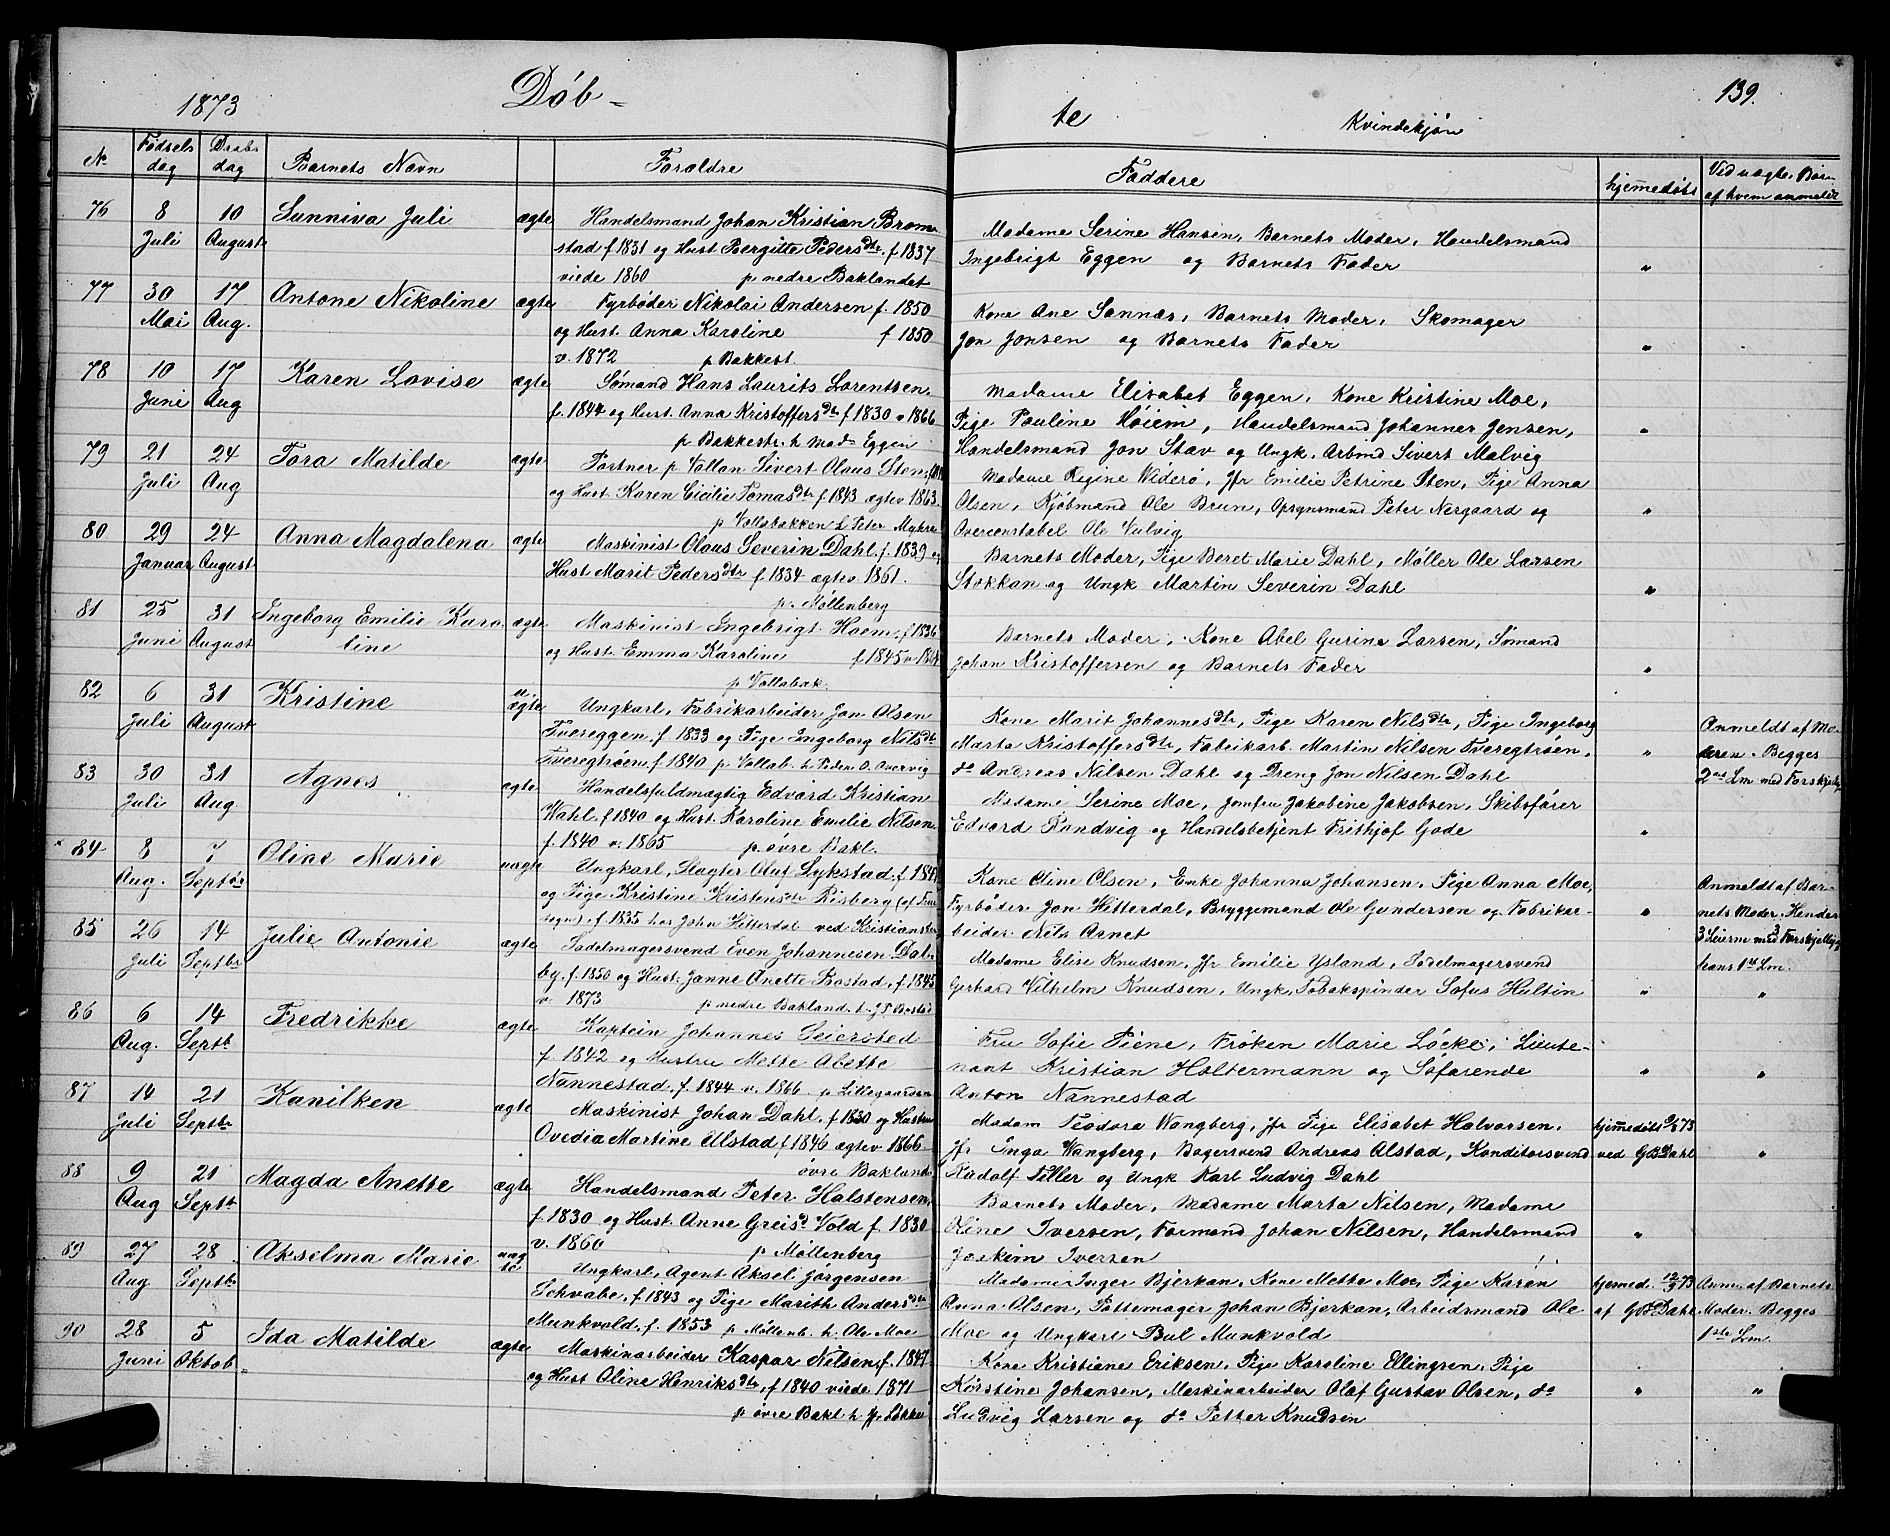 1873 Döb- te Kvindekjön 139.
No Födsels dag Daabs dag Barnets Navn Forældre Faddere hjemmedöbt Ved uægte Börn af hvem anmeldt
76 8 Juli 10 August Sunniva Juli ægte
Handelsmand Johan Kristian Brom-
stad f 1831 og Hust. Bergitte Pedersdtr. f. 1837
viede 1860 p nedre Baklandet
Madame Serine Hansen, Barnets Moder, Handelsmand
Ingebrigt Eggen og Barnets Fader "
77 30 Mai 17 Aug. Antone Nikoline ægte
Fyrböder Nikolai Andersen f. 1850
og Hust. Anna Karoline f 1850
v. 1872 p Bakkest.
Kone Ane Sannæs, Barnets Moder, Skomager
Jon Jonsen og Barnets Fader "
78 10 Juni 17 Aug Karen Lovise ægte
Sömand Hans Laurits Lorentsen.
f. 1844 og Hust. Anna Kristoffersdtr f 1830 v 1866
p Bakkestr. h Mad. Eggen
Madame Elisabet Eggen, Kone Kristine Moe,
Pige Pauline Höiem, Handelsmand Johannes Jensen,
Handelsmand Jon Stav og Ungk. Arbmd Sivert Malvig "
79 21 Juli 24 Aug Tora Matilde ægte
Portner p Vollan Sivert Olaus Sten,
og Hust. Karen Cicilie Tomasdtr f 1843 ægtev 1863.
p Vollabakken h Peter Myhre
Madame Regine Wideröe, Jfr Emilie Petrine Sten, Pige Anna
Olsen, Kjöbmand Ole Brun, Opsynsmand Peter Nergaard og
Overconstabel Ole Vulvig "
80 29 Januar 24 August Anna Magdalena ægte
Maskinist Olaus Severin Dahl f. 1839 og
Hust Marit Pedersdtr f 1834 ægtev 1861.
p. Möllenberg
Barnets Moder, Pige Beret Marie Dahl, Möller Ole Larsen
Stokkan og Ungk Martin Severin Dahl "
81 25 Juni 31 August Ingeborg Emilie Karo-
line ægte
Maskinist Ingebrigt Hoem, f 1836
og Hust. Emma Karoline f 1845 v
p Vollabak.
Barnets Moder, Kone Abel Gurine Larsen, Sömand
Johan Kristoffersen og Barnets Fader "
82 6 Juli 31 August Kristine u. ægte
Ungkarl, Fabrikarbeider Jon Olsen
Tvereggen f. 1833 og Pige Ingeborg Nilsdtr
Tveregtröen f 1840 p Vollab. h Peder O. Overvig
Kone Marit Johannesdtr, Pige Karen Nilsdtr, Pige Ingeborg
Marta Kristoffersdtr, Fabrikarb. Martin Nilsen Tveregtröen,
do Andreas Nilsen Dahl og Dreng Jon Nilsen Dahl "
Anmeldt af Mo-
deren. Begges
2det Lm med Forskjellig
83 30 Juli 31 Aug Agnes ægte
Handelsfuldmægtig Edvard Kristian
Wahl f 1840 og Hust. Karoline Emilie Nilsen
f. 1840 v. 1865 p. övre Bakl.
Madame Serine Moe, Jomfru Jakobine Jakobsen, Skibsförer
Edvard Randvig og Handelsbetjent Frithjof Gade "
84 8 Aug. 7 Septbr Oline Marie uægte
Ungkarl, Slagter Oluf Lykstad. f.
og Pige Kristine Kristensdtr Risberg (af
f. 1835 hos John Hitterdal ved Kristiansten
Kone Oline Olsen, Enke Johanna Johansen, Pige Anna Moe,
Fyrböder Jon Hitterdal, Bryggemand Ole Gundersen og Fabrikar-
beider Nils Aanet "
Anmeldt af Bar-
nets Moder. Hendes
3 Leierm med 3 Forskjellige
hans 1ste Lm.
85 26 Juli 14 Septbr Julie Antonie ægte
Sadelmagersvend Even Johannesen Dal-
by, f. 1850 og Hust. Janne Anette Bostad, f 1845
v 1873 p nedre Bakland. h. J. P. Bostad
Madame Elise Knudsen, Jfr Emilie Ysland, Sadelmagersvend
Gerhard Vilhelm Knudsen, Ungk, Tobakspinder Sofus Hultin " "
86 6 Aug. 14 Septb Fredrikke ægte
Kaptein Johannes Seiersted
f. 1842 og Hustru Mette Abette
Nannestad, f. 1844 v. 1866 p Lillegaarden
Fru Sofie Piene, Fröken Marie Löcke, Lieute-
nant Kristian Holtermann og Söfarende
Anton Nannestad " "
87 14 Juli 21 Septbr Kanilken ægte
Maskinist Johan Dahl, f 1830 og Hustru
Ovedia Martine Ulstad f 1846 ægtev 1866
övre Bakland.
Madam Teodora Wangberg, Jfr Pige Elisabet Halvorsen,
Jfr Inga Wangberg, Bagersvend Andreas Alstad, Konditorsvend
Rudolf Tiller og Ungk Karl Ludvig Dahl
hjemedöbt 73
ved G B Dahl "
88 9 Aug 21 Septbr Magda Anette ægte
Handelsmand Peter Halstensen,
f. 1830 og Hust. Anne Greisd Vold f. 1830
v. 1860 p Möllenberg
Barnets Moder, Madame Marta Nilsen, Madame
Oline Iversen, Formand Johan Nilsen, Handelsmand
Joakim Iversen "
89 27 Aug 28 Septbr Akselma Marie uægte
Ungkarl, Agent Aksel Jörgensen
Schvabe, f. 1843 og Pige Marith Andersdtr
Munkvold. f. 1853 p Möllenb. h. Ole Moe
Madame Inger Bjerkan, Kone Mette Moe, Pige Karen
Anna Olsen, Pottemager Johan Bjerkan, Arbeidsmand Ole
Moe og Ungkarl Bul Munkvold
hjemed. 12/9 73
af G B Dahl
Anm. af Barnets
Moder. Begges
1ste Lm.
90 28 Juni 5 Oktob Ida Matilde ægte
Maskinarbeider Kaspar Nilsen, f. 1847
og Hust Oline Henriksdtr, f 1840 viede 1871
p övre Bakl h Löcke
Kone Kristiane Eriksen, Pige Karoline Ellingsen, Pige
Kirstine Johansen, Maskinarbeider Olaf Gustav Olsen, do
Ludvig Larsen og do Petter Knudsen " "